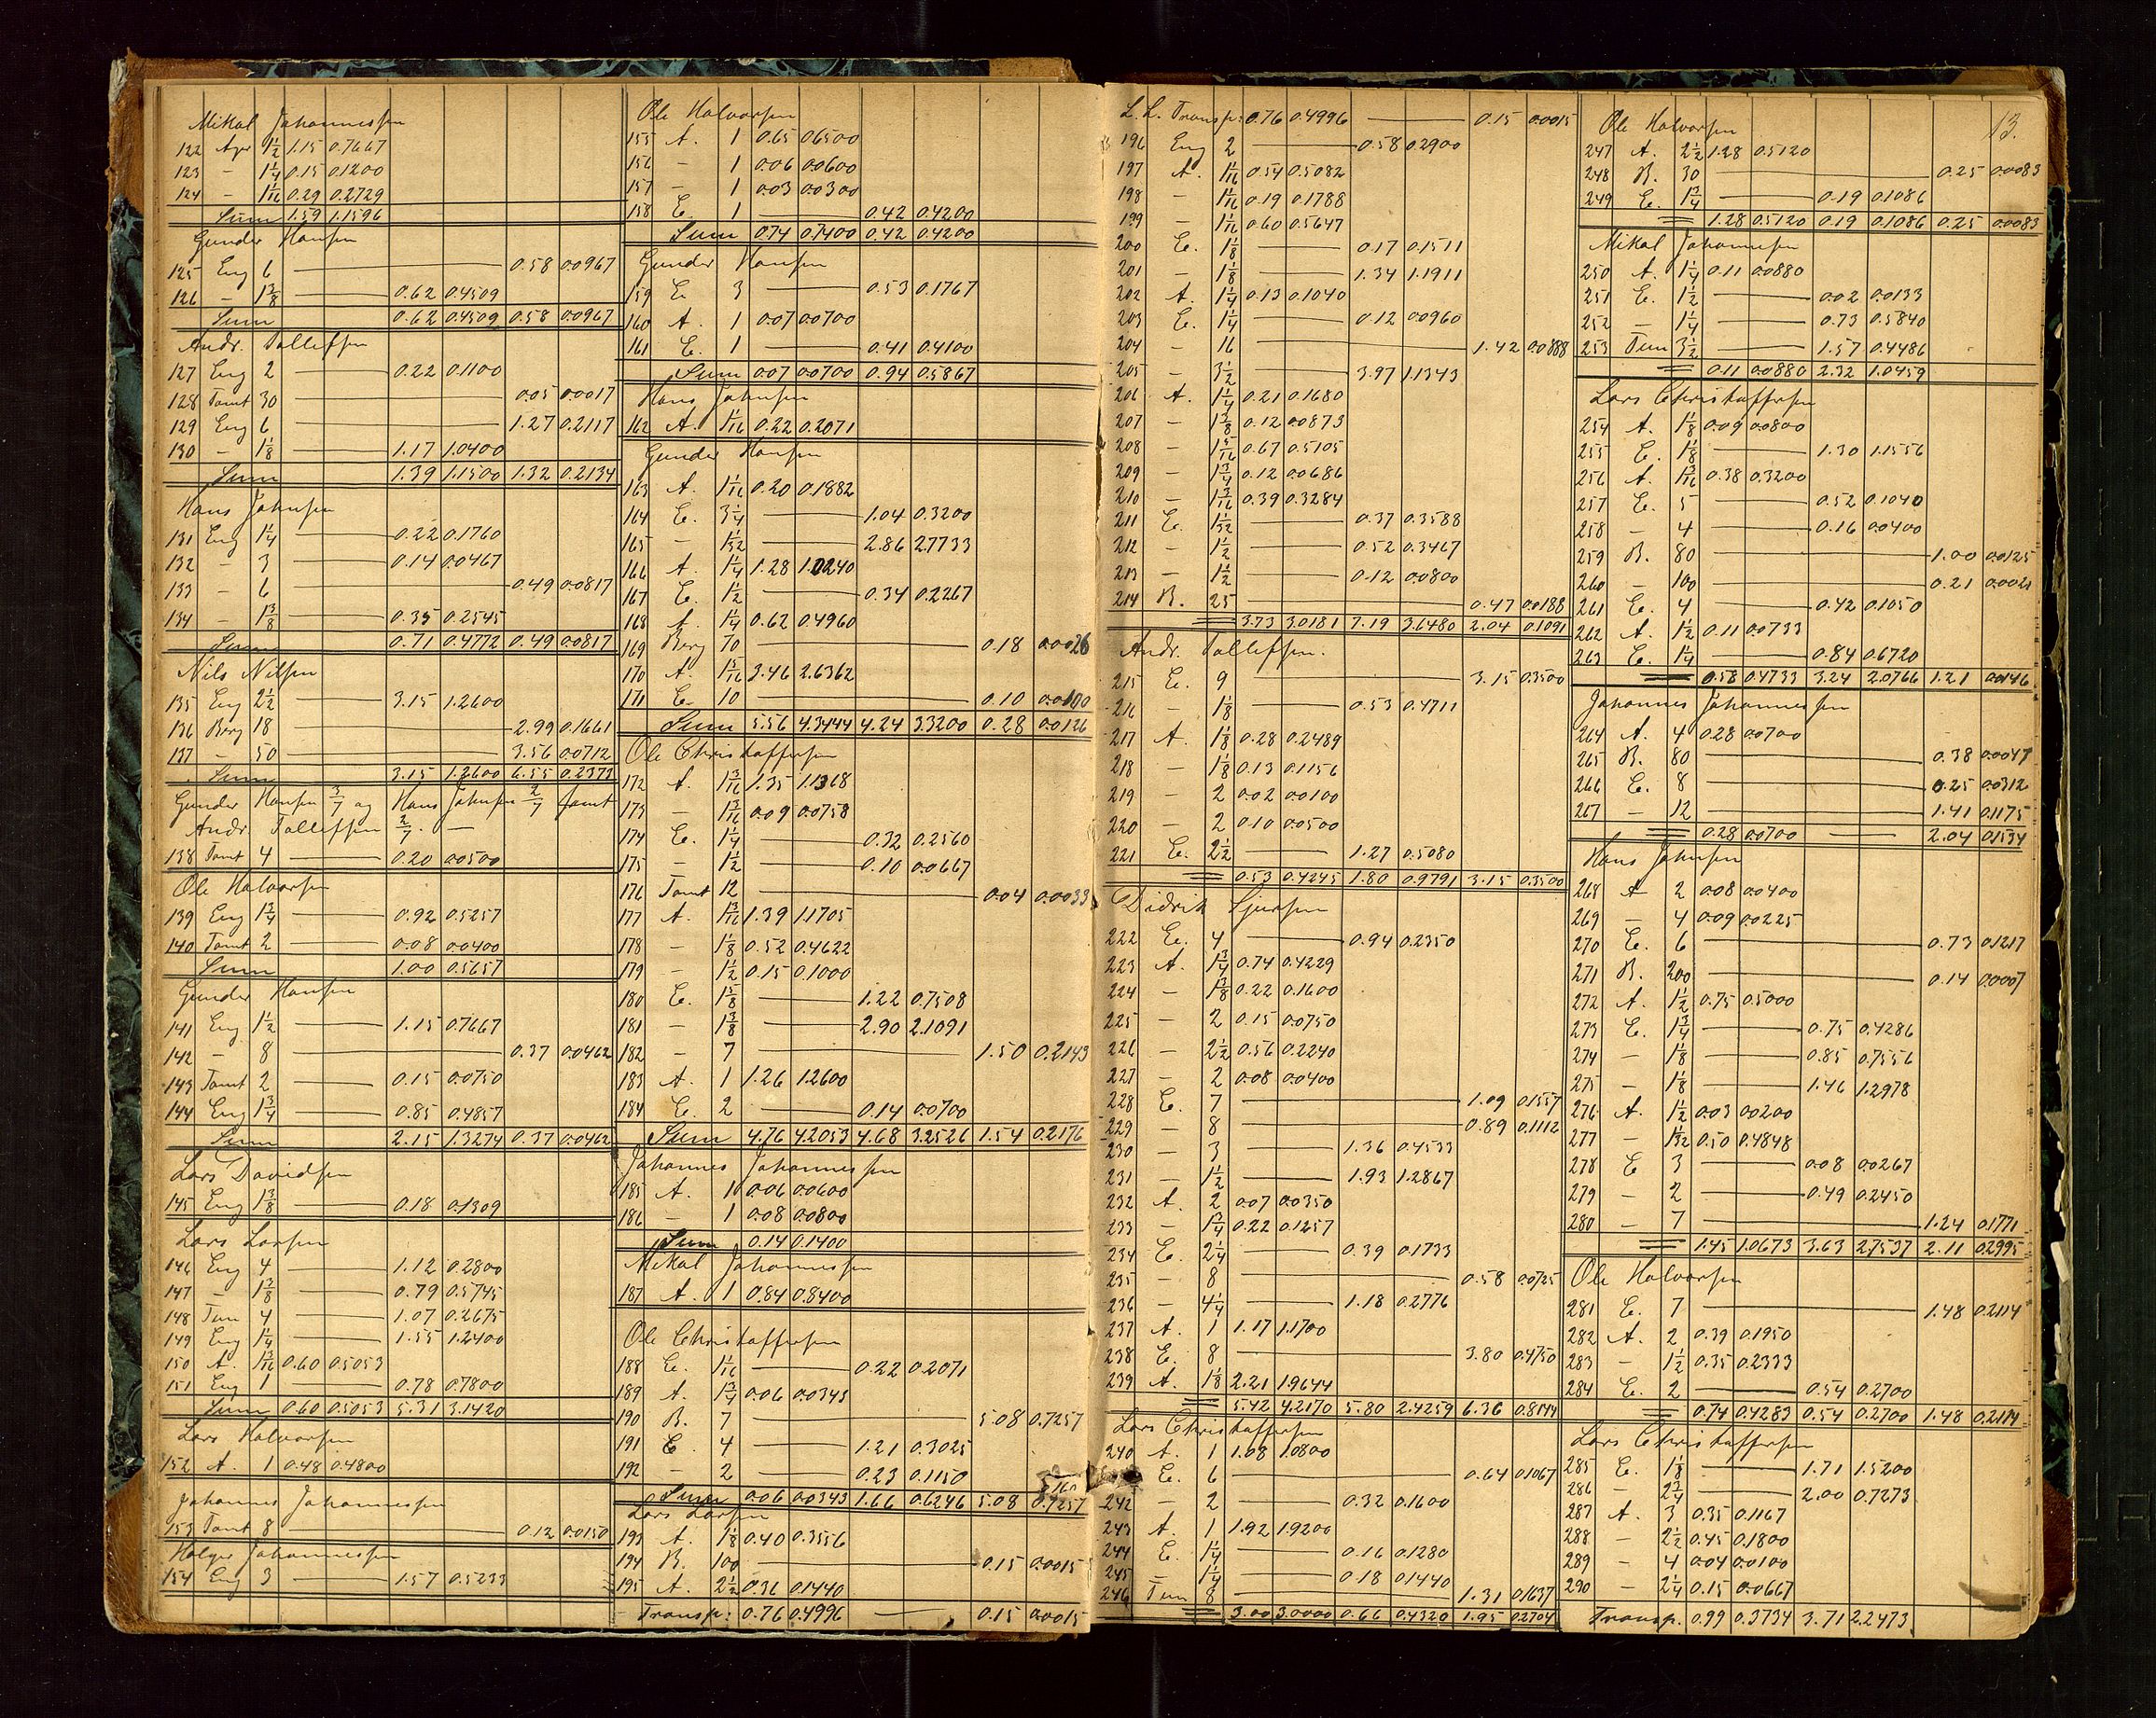 Mikal Johannessen
122 Ager 1½ 1.15 0.7667
123 - 1¼ 0.15 0.1200
124 - 1 1/16 0.29 0.2729
Sum 1.59 1.1596
Gunder Hansen
125 Eng 6 0.58 0.0967
126 - 1⅜ 0.62 0.4509
Sum 0.62 0.4509 0.58 0.0967
Andr. Tollefsen
127 Eng 2 0.22 0.1100
128 Tomt 30 0.05 0.0017
129 Eng 6 1.27 0.2117
130 - 1⅛ 1.17 1.0400
Sum 1.39 1.1500 1.32 0.2134
Hans Johnsen
131 Eng 1¼ 0.22 0.1760
132 - 3 0.14 0.0467
133 - 6 0.49 0.0817
134 - 1⅜ 0.35 0.2545
Sum 0.71 0.4772 0.49 0.0817
Nils Nilsen
135 Eng 2½ 3.15 1.2600
136 Berg 18 2.99 0.1661
137 - 50 3.56 0.0712
Sum 3.15 1.2600 6.55 0.2373
Gunder Hansen 3/7 og Hans Johnsen 2/7 samt
Andr. Tollefsen 2/7. —
138 Tomt 4 0.20 0.0500
Ole Halvorsen
139 Eng 1¾ 0.92 0.5257
140 Tomt 2 0.08 0.0400
Sum 1.00 0.5657
Gunder Hansen
141 Eng 1½ 1.15 0.7667
142 - 8 0.37 0.0462
143 Tomt 2 0.15 0.0750
144 Eng 1¾ 0.85 0.4857
Sum 2.15 1.3274 0.37 0.0462
Lars Davidsen
145 Eng 1⅜ 0.18 0.1309
Lars Larsen
146 Eng 4 1.12 0.2800
147 - 1⅜ 0.79 0.5745
148 Tun 4 1.07 0.2675
149 Eng 1¼ 1.55 1.2400
150 A. 1 3/16 0.60 0.5053
151 Eng 1 0.78 0.7800
Sum 0.60 0.5053 5.31 3.1420
Lars Halvorsen
152 A. 1 0.48 0.4800
Johannes Johannessen
153 Tomt 8 0.12 0.0150
Holger Johannessen
154 Eng 3 1.57 0.5233
Ole Halvorsen
155 A. 1 0.65 0.6500
156 - 1 0.06 0.0600
157 - 1 0.03 0.0300
158 E. 1 0.42 0.4200
Sum 0.74 0.7400 0.42 0.4200
Gunder Hansen
159 E. 3 0.53 0.1767
160 A. 1 0.07 0.0700
161 E. 1 0.41 0.4100
Sum 0.07 0.0700 0.94 0.5867
Hans Johnsen
162 A. 1 1/16 0.22 0.2071
Gunder Hansen
163 A. 1 1/16 0.20 0.1882
164 E. 3¼ 1.04 0.3200
165 - 1 1/32 2.86 2.7733
166 A. 1¼ 1.28 1.0240
167 E. 1½ 0.34 0.2267
168 A. 1¼ 0.62 0.4960
169 Berg 70 0.18 0.0026
170 A. 1 5/16 3.46 2.6362
171 E. 10 0.10 0.0100
Sum 5.56 4.3444 4.24 3.3200 0.28 0.0126
Ole Christoffersen
172 A. 1 3/16 1.35 1.1368
173 - 1 3/16 0.09 0.0758
174 E. 1¼ 0.32 0.2560
175 - 1½ 0.10 0.0667
176 Tomt 12 0.04 0.0033
177 A. 1 3/16 1.39 1.1705
178 - 1⅛ 0.52 0.4622
179 - 1½ 0.15 0.1000
180 E. 1⅝ 1.22 0.7508
181 - 1⅜ 2.90 2.1091
182 - 7 1.50 0.2143
183 A. 1 1.26 1.2600
184 E. 2 0.14 0.0700
Sum 4.76 4.2053 4.68 3.2526 1.54 0.2176
Johannes Johannessen
185 A. 1 0.06 0.0600
186 - 1 0.08 0.0800
Sum 0.14 0.1400
Mikal Johannessen
187 A. 1 0.84 0.8400
Ole Christoffersen
188 E. 1 1/16 0.22 0.2071
189 A. 1¾ 0.06 0.0343
190 B. 7 5.08 0.7257
191 E. 4 1.21 0.3025
192 - 2 0.23 0.1150
Sum 0.06 0.0343 1.66 0.6246 5.08 0.7257
Lars Larsen
193 A. 1⅛ 0.40 0.3556
194 B. 100 0.15 0.0015
195 A. 2½ 0.36 0.1440
Transp: 0.76 0.4996 — 0.15 0.0015
L. L. Transp: 0.76 0.4996 — 0.15 0.0015
196 Eng 2 0.58 0.2900
197 A. 1 1/16 0.54 0.5082
198 - 1 1/16 0.19 0.1788
199 - 1 1/16 0.60 0.5647
200 E. 1⅛ 0.17 0.1511
201 - 1⅛ 1.34 1.1911
202 A. 1¼ 0.13 0.1040
203 E. 1¼ 0.12 0.0960
204 - 16 1.42 0.0888
205 - 3½ 3.97 1.1343
206 A. 1¼ 0.21 0.1680
207 - 1⅜ 0.12 0.0873
208 - 1 5/16 0.67 0.5105
209 - 1¾ 0.12 0.0686
210 - 1 3/16 0.39 0.3284
211 E. 1 1/32 0.37 0.3588
212 - 1½ 0.52 0.3467
213 - 1½ 0.12 0.0800
214 B. 25 0.47 0.0188
3.73 3.0181 7.19 3.6480 2.04 0.1091
Andr. Tollefsen.
215 E. 9 3.15 0.3500
216 - 1⅛ 0.53 0.4711
217 A. 1⅛ 0.28 0.2489
218 - 1⅛ 0.13 0.1156
219 - 2 0.02 0.0100
220 - 2 0.10 0.0500
221 E. 2½ 1.27 0.5080
0.53 0.4245 1.80 0.9791 3.15 0.3500
Didrik Sjursen
222 E. 4 0.94 0.2350
223 A. 1¾ 0.74 0.4229
224 - 1⅜ 0.22 0.1600
225 - 2 0.15 0.0750
226 - 2½ 0.56 0.2240
227 - 2 0.08 0.0400
228 E. 7 1.09 0.1557
229 - 8 0.89 0.1112
230 - 3 1.36 0.4533
231 - 1½ 1.93 1.2867
232 A. 2 0.07 0.0350
233 - 1¾ 0.22 0.1257
234 E. 2¼ 0.39 0.1733
235 - 8 0.58 0.0725
236 - 4¼ 1.18 0.2776
237 A. 1 1.17 1.1700
238 E. 8 3.80 0.4750
239 A. 1⅛ 2.21 1.9644
5.42 4.2170 5.80 2.4259 6.36 0.8144
Lars Christoffersen
240 A. 1 1.08 1.0800
E. 6 0.64 0.1067
242 - 2 0.32 0.1600
243 A. 1 1.92 1.9200
244 E. 1¼ 0.16 0.1280
245 - 1¼ 0.18 0.1440
246 Tun 8 1.31 0.1637
3.00 3.0000 0.66 0.4320 1.95 0.2704
13.
Ole Halvorsen
247 A. 2½ 1.28 0.5120
248 B. 30 0.25 0.0083
249 E. 1¾ 0.19 0.1086
1.28 0.5120 0.19 0.1086 0.25 0.0083
Mikal Johannesen
250 A. 1¼ 0.11 0.0880
251 E. 1½ 0.02 0.0133
252 - 1¼ 0.73 0.5840
253 Tun 3½ 1.57 0.4486
0.11 0.0880 2.32 1.0459
Lars Christoffersen
254 A. 1⅛ 0.09 0.0800
255 E. 1⅛ 1.30 1.1556
256 A. 1 3/16 0.38 0.3200
257 E. 5 0.52 0.1040
258 - 4 0.16 0.0400
259 B. 80 1.00 0.0125
260 - 100 0.21 0.0021
261 E. 4 0.42 0.1050
262 A. 1½ 0.11 0.0733
263 E. 1¼ 0.84 0.6720
0.58 0.4733 3.24 2.0766 1.21 0.0146
Johannes Johannessen
264 A. 4 0.28 0.0700
265 B. 80 0.38 0.0047
266 E. 8 0.25 0.0312
267 - 12 1.41 0.1175
0.28 0.0700 — 2.04 0.1534
Hans Johnsen
268 A 2 0.08 0.0400
269 - 4 0.09 0.0225
270 E. 6 0.73 0.1217
271 B. 200 0.14 0.0007
272 A. 1½ 0.75 0.5000
273 E. 1¾ 0.75 0.4286
274 - 1⅛ 0.85 0.7556
275 - 1⅛ 1.46 1.2978
276 A. 1½ 0.03 0.0200
277 - 1 1/32 0.50 0.4848
278 E 3 0.08 0.0267
279 - 2 0.49 0.2450
280 - 7 1.24 0.1771
1.45 1.0673 3.63 2.7537 2.11 0.2995
Ole Halvorsen
281 E. 7 1.48 0.2114
282 A. 2 0.39 0.1950
283 - 1½ 0.35 0.2333
284 E. 2 0.54 0.2700
0.74 0.4283 0.54 0.2700 1.48 0.2114
Lars Christoffersen
285 E. 1⅛ 1.71 1.5200
286 - 2¾ 2.00 0.7273
287 A. 3 0.35 0.1167
288 - 2½ 0.45 0.1800
289 - 4 0.04 0.0100
290 - 2¼ 0.15 0.0667
Transp. 0.99 0.3734 3.71 2.2473